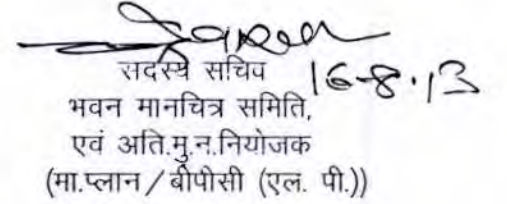 सदस्य सचिव
16-8-13
भवन मानचित्र समिति,
एवं अति.मु.न.नियोजक
(मा.प्लान / बीपीसी (एल. पी.))